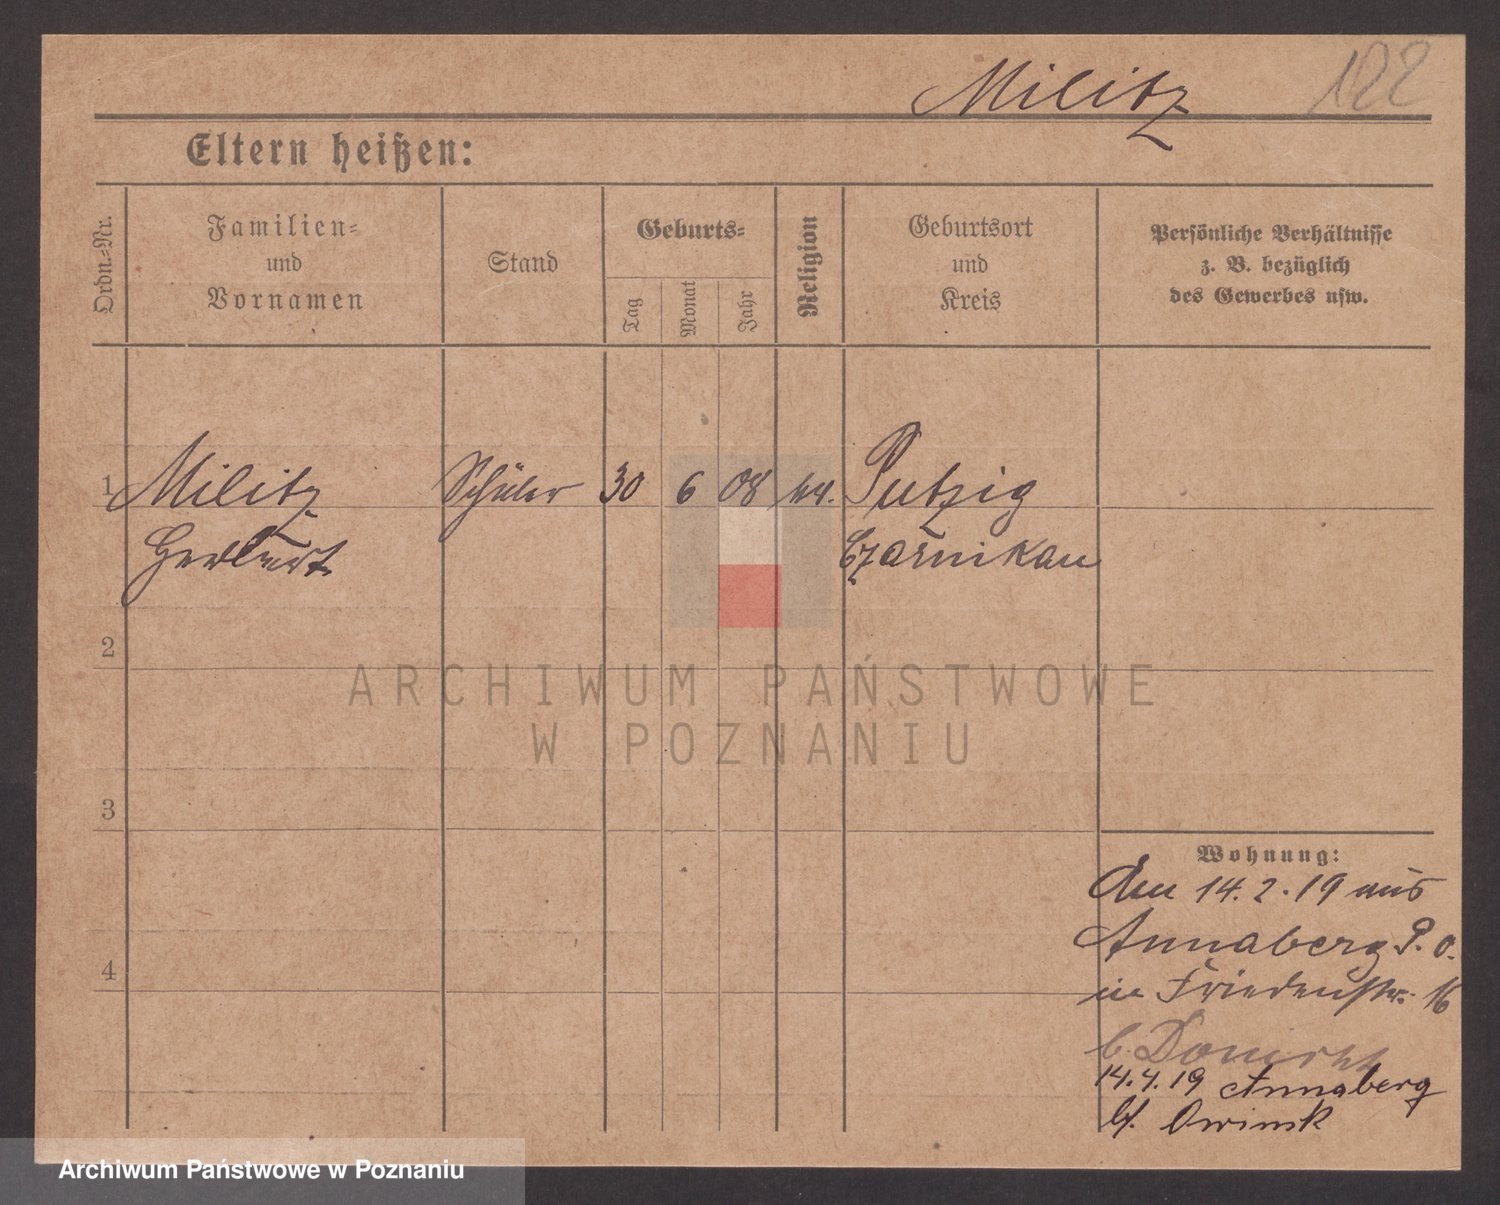 Militz
122
Eltern heißen:
Ordn.-Nr.
Familien-
und
Vornamen
Stand
Geburts-
Tag
Monat
Jahr
Religion
Geburtsort
und
Kreis
Persönliche Verhältnisse
z. B. bezüglich
des Gewerbes usw.
1 Militz Schüler 30 6 08 Putzig
Herbert Czarnikau
2
3
4
Wohnung:
den 14.2.19 aus
Annaberg P. O.
in Friedenstr. 16
b.
14.4.19 Annaberg
b/. Owinsk
ARCHIWUM PAŃSTWOWE
W POZNANIU
Archiwum Państwowe w Poznaniu